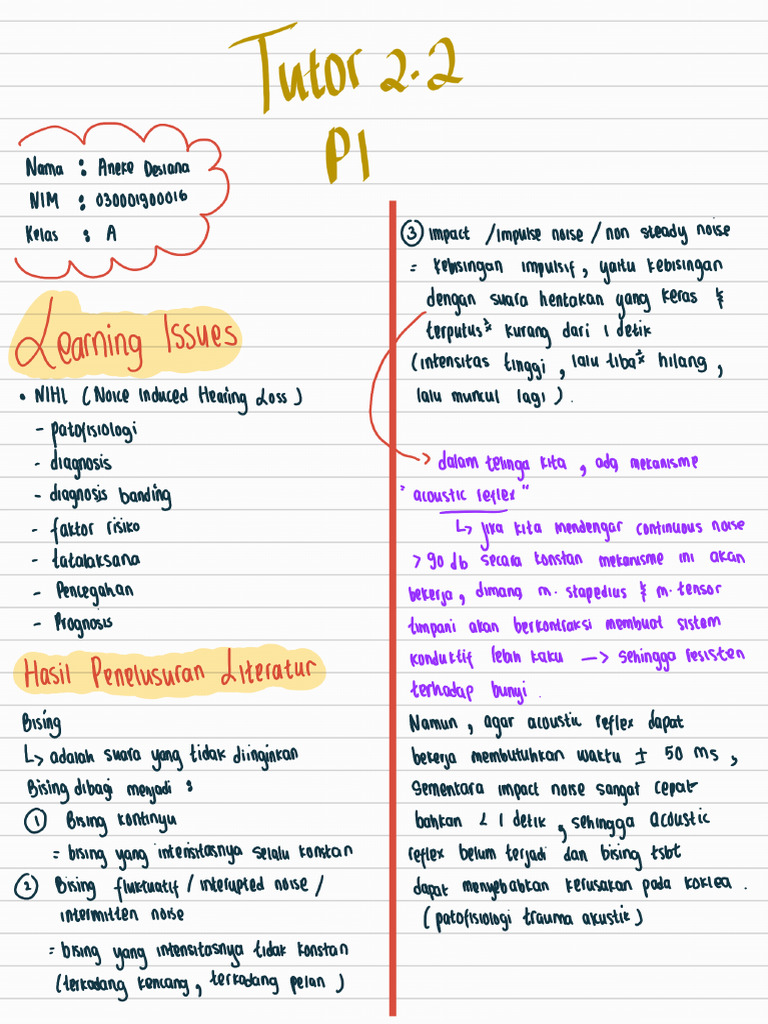 Tutor 2.2
P1
Nama : Aneke Desiana
NIM : 030001900016
Kelas : A
Learning Issues
• NIHL (Noice Induced Hearing Loss)
- patofisiologi
- diagnosis
- diagnosis banding
- faktor risiko
- tatalaksana
- Pencegahan
- Prognosis
Hasil Penelusuran Literatur
Bising
↳ adalah suara yang tidak diinginkan
Bising dibagi menjadi :
① Bising kontinyu
= bising yang intensitasnya selalu konstan
② Bising fluktuatif / interupted noise /
intermitten noise
= bising yang intensitasnya tidak konstan
(terkadang kencang, terkadang pelan)
③ impact / impulse noise / non steady noise
= kebisingan impulsif, yaitu kebisingan
dengan suara hentakan yang keras &
terputus² kurang dari 1 detik
(intensitas tinggi, lalu tiba² hilang,
lalu muncul lagi).
→ dalam telinga kita, ada mekanisme
"acoustic reflex"
↳ jika kita mendengar continuous noise
> 90 db secara konstan mekanisme ini akan
bekerja, dimana m. stapedius & m. tensor
timpani akan berkontraksi membuat sistem
konduktif lebih kaku → sehingga resisten
terhadap bunyi.
Namun, agar acoustic reflex dapat
bekerja membutuhkan waktu ± 50 ms,
sementara impact noise sangat cepat
bahkan < 1 detik, sehingga acoustic
reflex belum terjadi dan bising tsbt
dapat menyebabkan kerusakan pada koklea.
(patofisiologi trauma akustik)